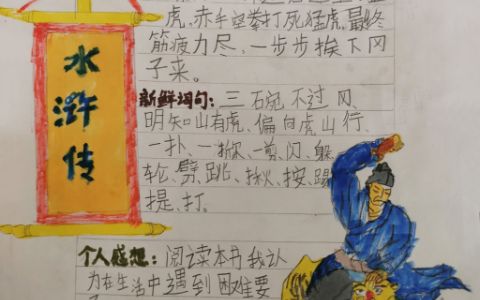 水浒传
虎、赤手空拳打死猛虎、最终
筋疲力尽，一步步挨下冈
子来。
新鲜词句：三碗不过冈、
明知山有虎、偏向虎山行、
一扑、一掀、一剪、闪、躲、
轮、劈、跳、揪、按、踢
提、打.
个人感想：阅读本书我认
为在生活中遇到困难要